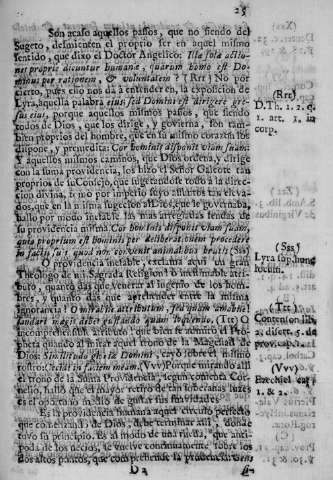 25
Son acaso aquellos passos, que no siendo del
Sugeto, desmienten el proprio ser en aquel mismo
sentido, que dixo el Doctor Angelico: Illæ solæ actio-
nes propriè dicuntur humanæ, quarum homo est Do-
minus per rationem, & voluntatem? (Rrr) No por
cierto, pues esso nos dà à entender en, la exposicion de
Lyra, aquella palabra ejus, sed Domini est dirigere gres-
sus ejus, porque aquellos mismos passos, que siendo
todos de Dios, que los dirige, y govierna, son tam-
bien proprios del hombre, que en su mismo corazon los
dispone, y premedita: Cor hominis disponit viam suam:
Y aquellos mismos caminos, que Dios ordena, y dirige
con la suma providencia, los hizo el Señor Galeote tan
proprios de su Consejo, que
divina, si no por impulso
dos, que en la misma sugecion al Dios, que le governaba,
hallo por modo inefable las mas arregladas sendas de
su providencia misma. Cor hominis disponit viam suam,
quia proprium est hominis per deliberationem procedere
in factis suis quod non convenit animalibus brutis (Sss)
O providencia inefable, exclama aqui un gran
Theologo de mi Sagrada Religion! O inefinable atribu-
tributo, quanto das que venerar al ingenio de los hom-
bres, y quanto das que aprehender entre la misma
ignorancia!
laudari magis debet (Ttt) O
incomprehensible atributo! que bien se admirò el Pro-
pheta quando al mirar aquel trono de la Magestad de
Dios: Similitudo gloriæ Domini, cayò sobre el mismo
rostro: Cecidi in faciem meam. (Vvv) Porque mirando alli
el trono de la Suma Providencia, segun comenta Cor-
nelio, hallò que el mayor retiro de sus
es el oportuno medio de guiar sus suavidades.
Es la providencia humana aquel circulo perfecto
que comenzando de Dios, debe terminar alli, donde
tuvo su principio. Es al modo de una rueda, que anti-
poda de los necios, se vuelve continuamente sobre los
dos altos puntos, que comprehende la prudencia: Gens
D 2
(Rrr)
D.Th. 1. 2. q.
1. art. 1. in
corp.
(Sss)
Lyra sup. hunc
locum.
(Ttt)
Contenson lib.
2. dissert. 5. de
prov. cap. 1.
(Vvv)
Ezechiel cap.
1. & 2.